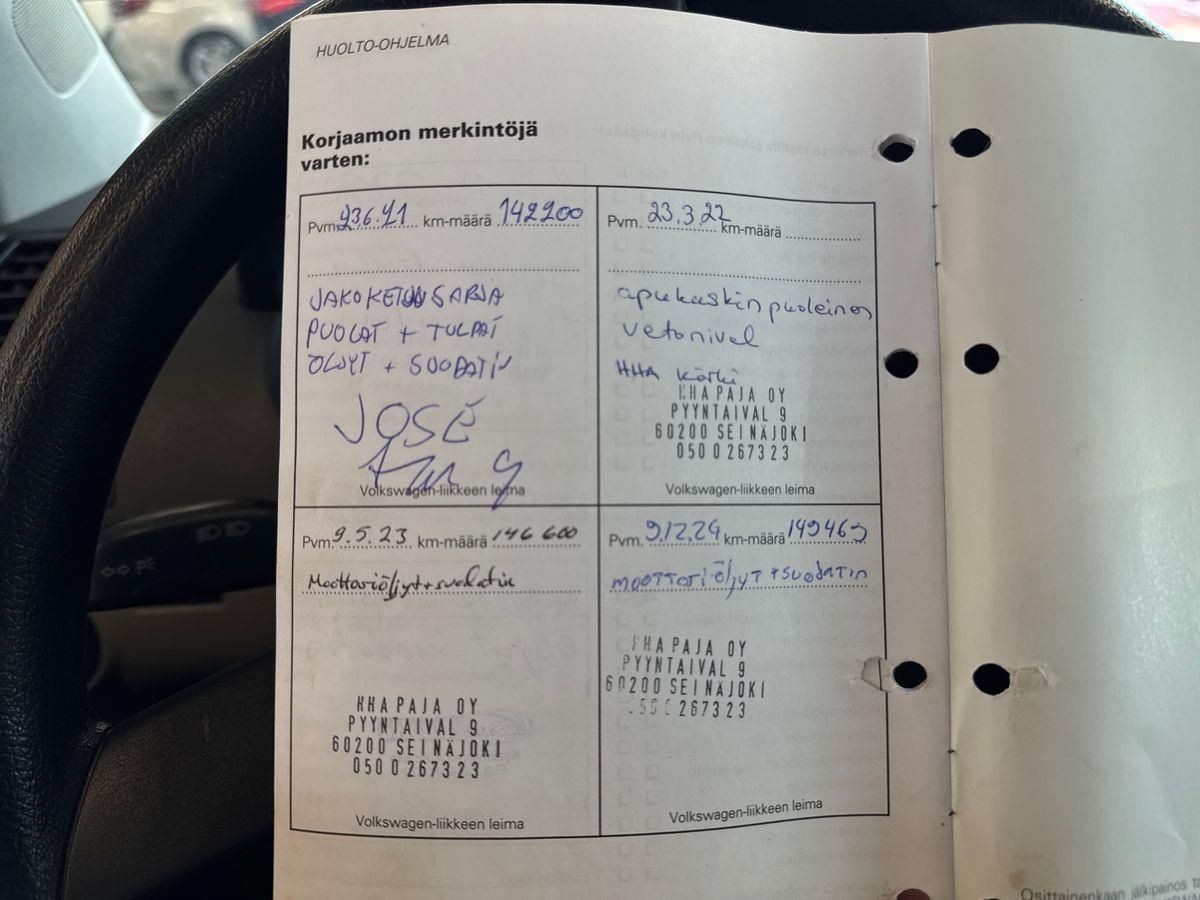 HUOLTO-OHJELMA
Korjaamon merkintöjä
varten:
Pvm. 23.6.21 km-määrä 142200
JAKOKETJUSARJA
PUOLAT + TULPAT
ÖLJYT + SUODATIN
JOSÉ
Volkswagen-liikkeen leima
Pvm. 23.3.22 km-määrä
apukuskin puoleinen
vetonivel
HHA Körki
HHA PAJA OY
PYYNTAIVAL 9
60200 SEINÄJOKI
050 0267323
Volkswagen-liikkeen leima
Pvm. 9.5.23 km-määrä 146 600
Moottoriöljyt+suodatin
HHA PAJA OY
PYYNTAIVAL 9
60200 SEINÄJOKI
050 0267323
Volkswagen-liikkeen leima
Pvm. 9.12.24 km-määrä 149465
moottoriöljyt +suodatin
HHA PAJA OY
PYYNTAIVAL 9
60200 SEINÄJOKI
050 0267323
Volkswagen-liikkeen leima
Osittainenkaan jälkipainos